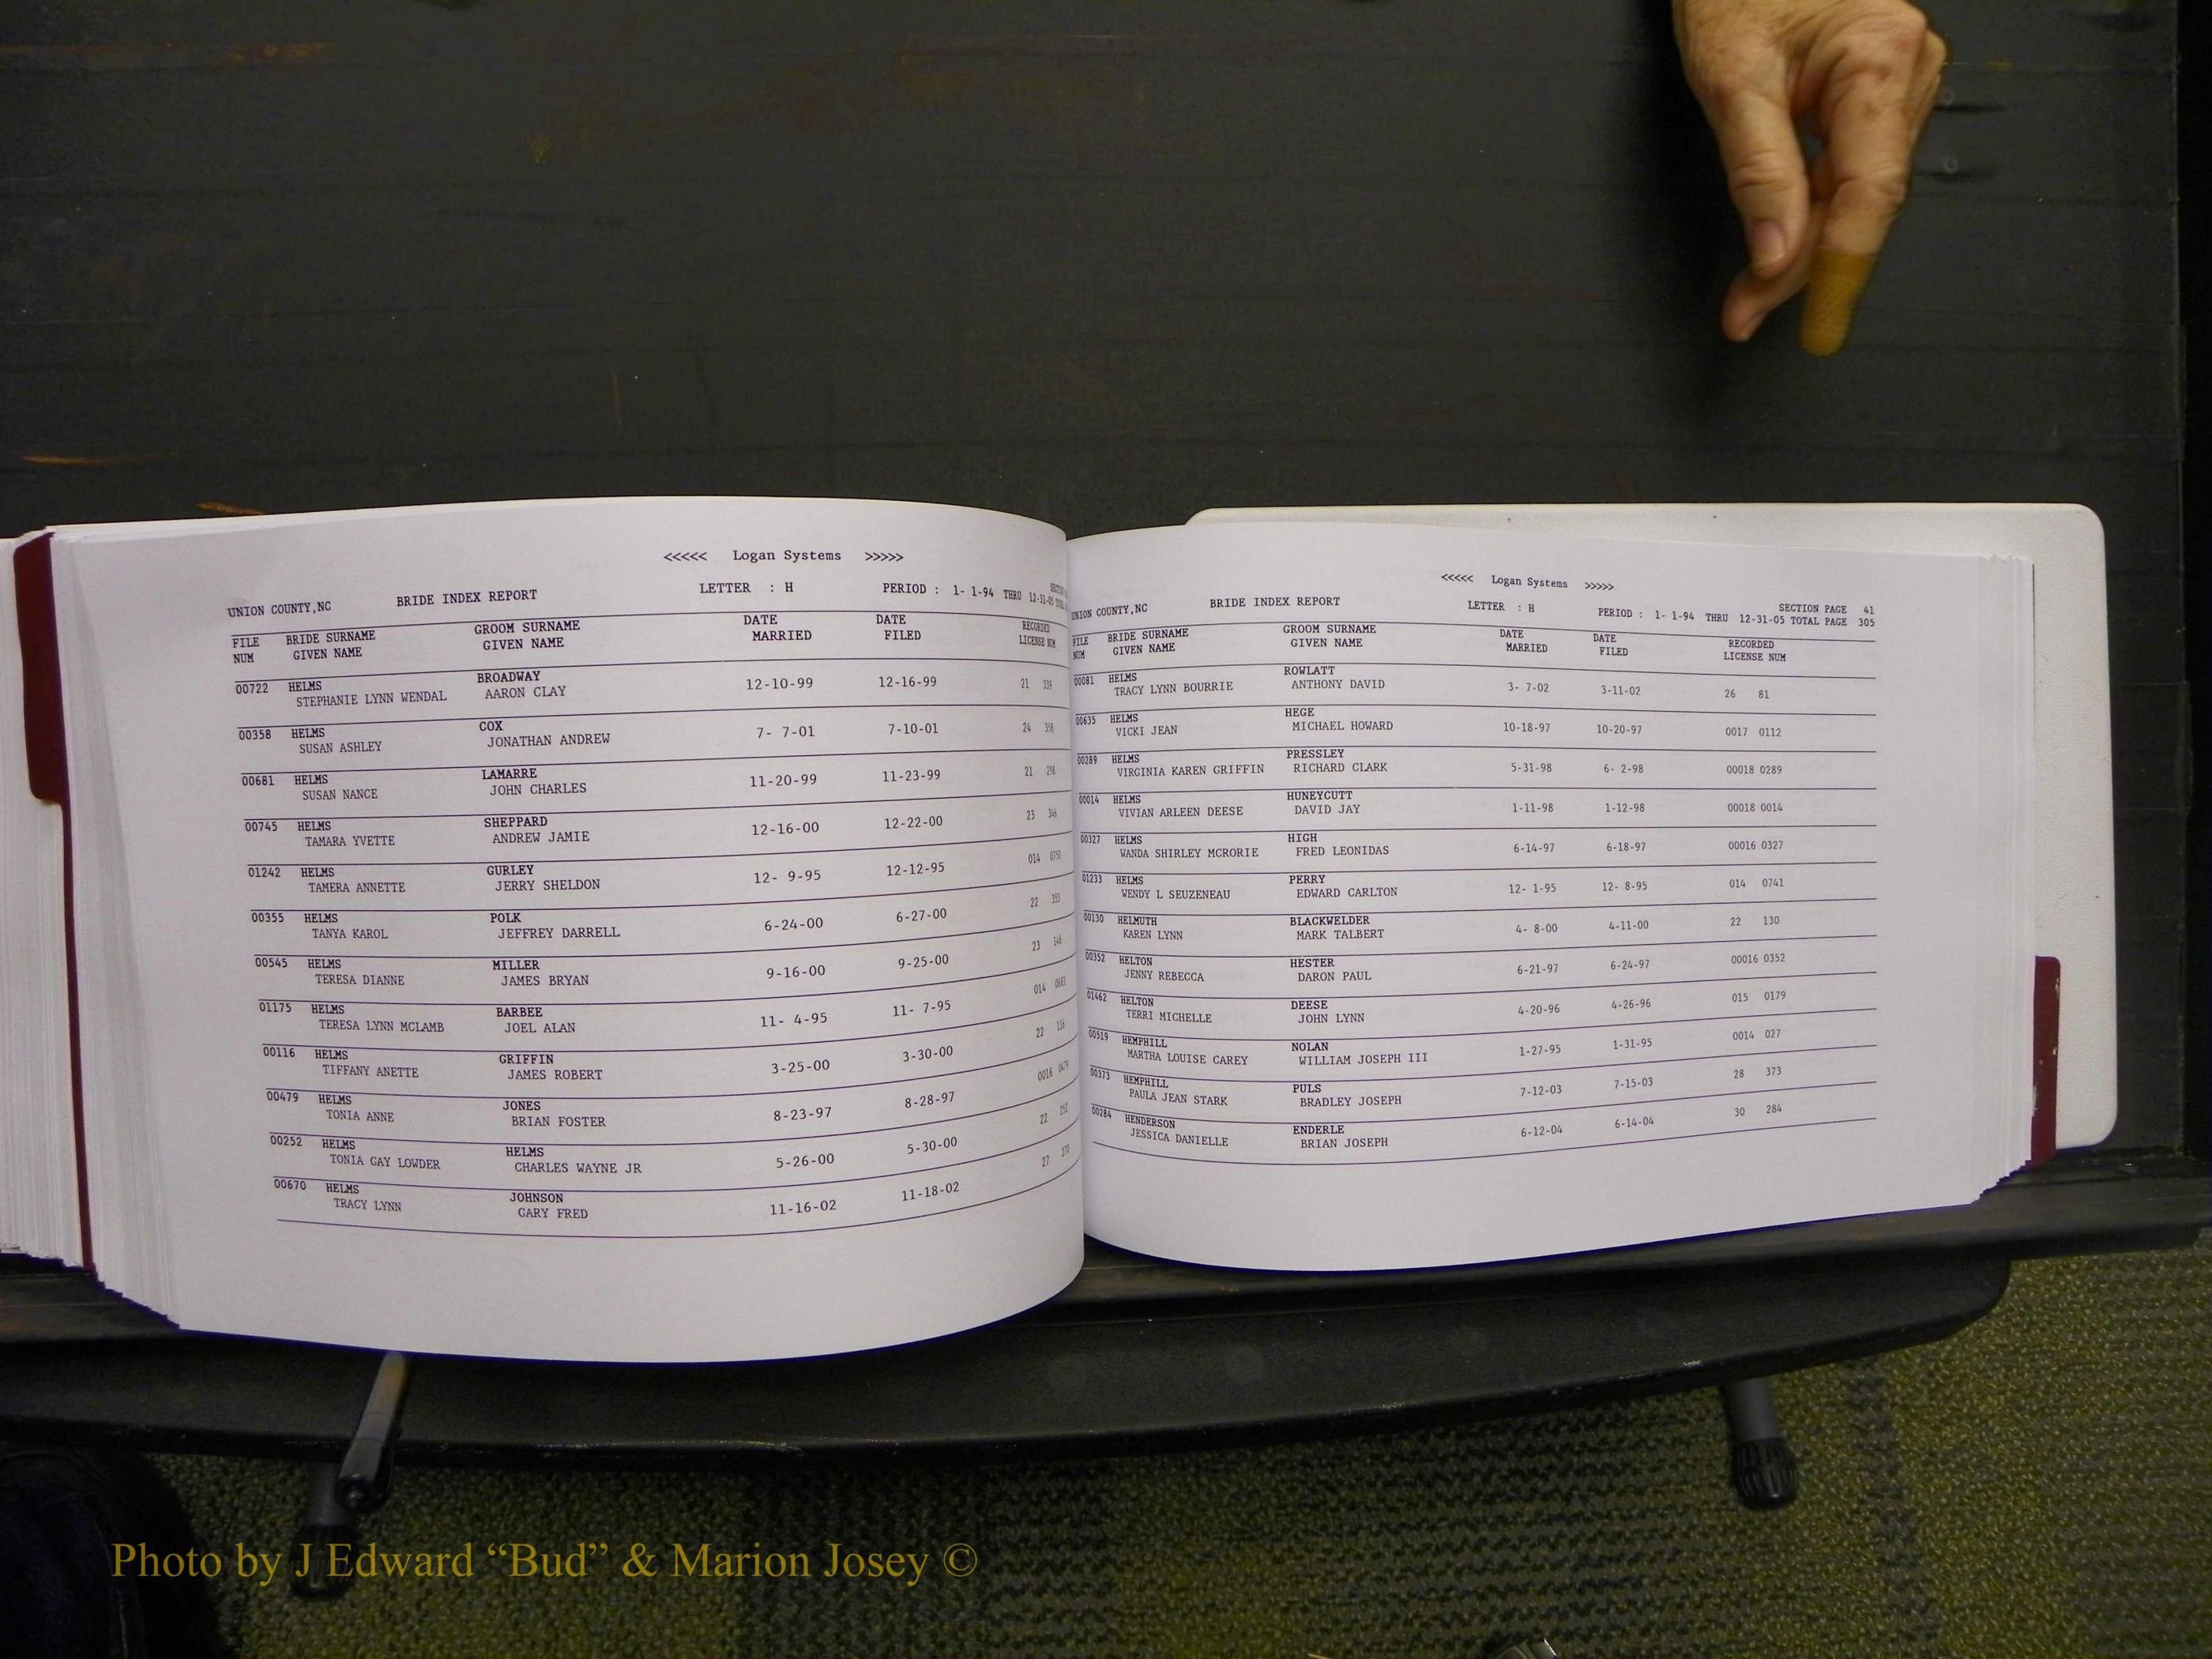 <<<<< Logan Systems >>>>>
UNION COUNTY,NC BRIDE INDEX REPORT LETTER : H PERIOD : 1- 1-94 THRU 12-31-05
FILE BRIDE SURNAME GROOM SURNAME DATE DATE RECORDED
NUM GIVEN NAME GIVEN NAME MARRIED FILED LICENSE NUM
00722 HELMS BROADWAY 12-10-99 12-16-99 21 339
STEPHANIE LYNN WENDAL AARON CLAY
00358 HELMS COX 7- 7-01 7-10-01 24 358
SUSAN ASHLEY JONATHAN ANDREW
00681 HELMS LAMARRE 11-20-99 11-23-99 21 298
SUSAN NANCE JOHN CHARLES
00745 HELMS SHEPPARD 12-16-00 12-22-00 23 346
TAMARA YVETTE ANDREW JAMIE
01242 HELMS GURLEY 12- 9-95 12-12-95 014 0750
TAMERA ANNETTE JERRY SHELDON
00355 HELMS POLK 6-24-00 6-27-00 22 355
TANYA KAROL JEFFREY DARRELL
00545 HELMS MILLER 9-16-00 9-25-00 23 146
TERESA DIANNE JAMES BRYAN
01175 HELMS BARBEE 11- 4-95 11- 7-95 014 0683
TERESA LYNN MCLAMB JOEL ALAN
00116 HELMS GRIFFIN 3-25-00 3-30-00 22 116
TIFFANY ANETTE JAMES ROBERT
00479 HELMS JONES 8-23-97 8-28-97 0016 0479
TONIA ANNE BRIAN FOSTER
00252 HELMS HELMS 5-26-00 5-30-00 22 252
TONIA GAY LOWDER CHARLES WAYNE JR
00670 HELMS JOHNSON 11-16-02 11-18-02 27
TRACY LYNN GARY FRED
<<<<< Logan Systems >>>>>
SECTION PAGE 41
UNION COUNTY,NC BRIDE INDEX REPORT LETTER : H PERIOD : 1- 1-94 THRU 12-31-05 TOTAL PAGE 305
FILE BRIDE SURNAME GROOM SURNAME DATE DATE RECORDED
NUM GIVEN NAME GIVEN NAME MARRIED FILED LICENSE NUM
00081 HELMS ROWLATT 3- 7-02 3-11-02 26 81
TRACY LYNN BOURRIE ANTHONY DAVID
00635 HELMS HEGE 10-18-97 10-20-97 0017 0112
VICKI JEAN MICHAEL HOWARD
00289 HELMS PRESSLEY 5-31-98 6- 2-98 00018 0289
VIRGINIA KAREN GRIFFIN RICHARD CLARK
00014 HELMS HUNEYCUTT 1-11-98 1-12-98 00018 0014
VIVIAN ARLEEN DEESE DAVID JAY
00327 HELMS HIGH 6-14-97 6-18-97 00016 0327
WANDA SHIRLEY MCRORIE FRED LEONIDAS
01233 HELMS PERRY 12- 1-95 12- 8-95 014 0741
WENDY L SEUZENEAU EDWARD CARLTON
00130 HELMUTH BLACKWELDER 4- 8-00 4-11-00 22 130
KAREN LYNN MARK TALBERT
00352 HELTON HESTER 6-21-97 6-24-97 00016 0352
JENNY REBECCA DARON PAUL
01462 HELTON DEESE 4-20-96 4-26-96 015 0179
TERRI MICHELLE JOHN LYNN
00519 HEMPHILL NOLAN 1-27-95 1-31-95 0014 027
MARTHA LOUISE CAREY WILLIAM JOSEPH III
00373 HEMPHILL PULS 7-12-03 7-15-03 28 373
PAULA JEAN STARK BRADLEY JOSEPH
00284 HENDERSON ENDERLE 6-12-04 6-14-04 30 284
JESSICA DANIELLE BRIAN JOSEPH
Photo by J Edward “Bud” & Marion Josey ©